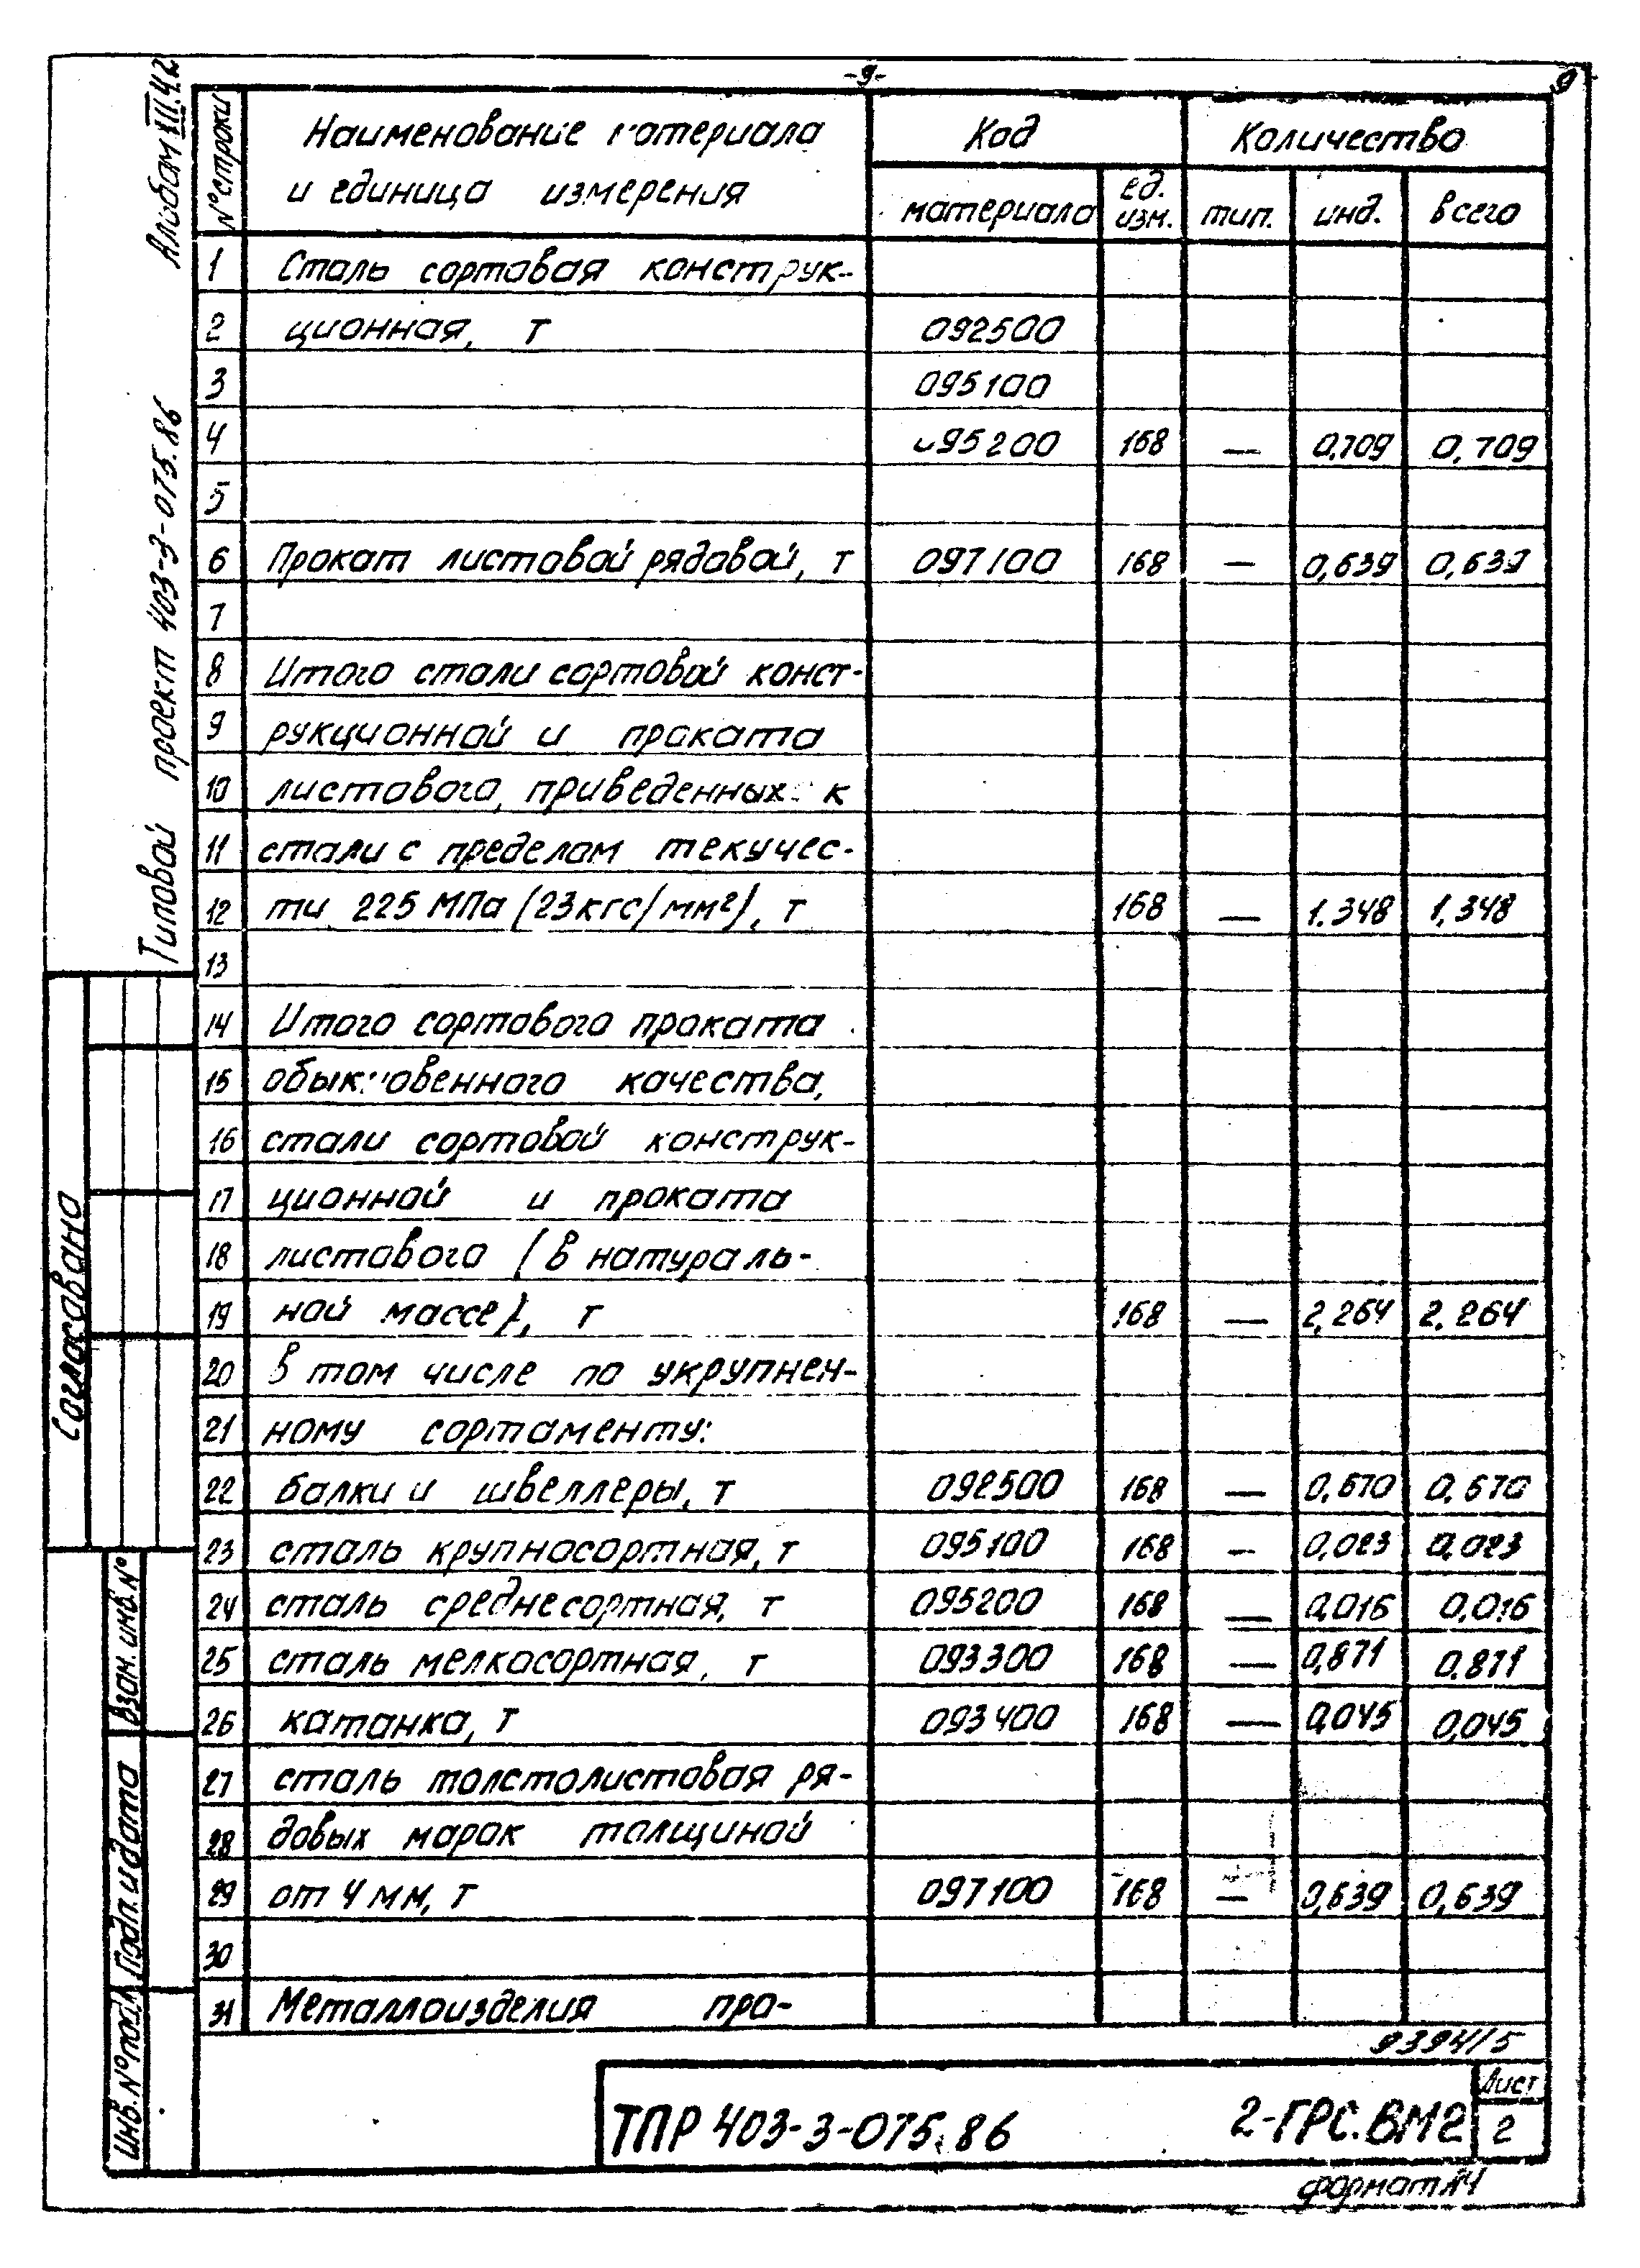 -9-
9
Альбом III.42
Типовой проект 403-3-075.86
№ строки
Наименование материала
и единица измерения
Код
Количество
материала
ед.
изм.
тип.
инд.
всего
1 Сталь сортовая конструк-
2 ционная, т 092500
3 095100
4 095200 168 — 0,709 0,709
5
6 Прокат листовой рядовой, т 097100 168 — 0,639 0,639
7
8 Итого стали сортовой конст-
9 рукционной и проката
10 листового, приведенных к
11 стали с пределом текучес-
12 ти 225 МПа (23кгс/мм²), т 168 — 1.348 1,348
13
14 Итого сортового проката
15 обыкновенного качества,
16 стали сортовой конструк-
17 ционной и проката
18 листового (в натураль-
19 ной массе), т 168 — 2,264 2.264
20 В том числе по укрупнен-
21 ному сортаменту:
22 балки и швеллеры, т 092500 168 — 0,670 0,670
23 сталь крупносортная, т 095100 168 — 0,023 0,023
24 сталь среднесортная, т 095200 168 — 0,016 0,016
25 сталь мелкосортная, т 093300 168 — 0,871 0.871
26 катанка, т 093400 168 — 0,045 0,045
27 сталь толстолистовая ря-
28 довых марок толщиной
29 от 4 мм, т 097100 168 — 0,639 0,639
30
31 Металлоизделия про-
Согласовано
Взам. инв. №
Подп. и дата
Инв. № подл.
9394/5
ТПР 403-3-075.86 2-ГРС.ВМ2
Лист
2
формат А4